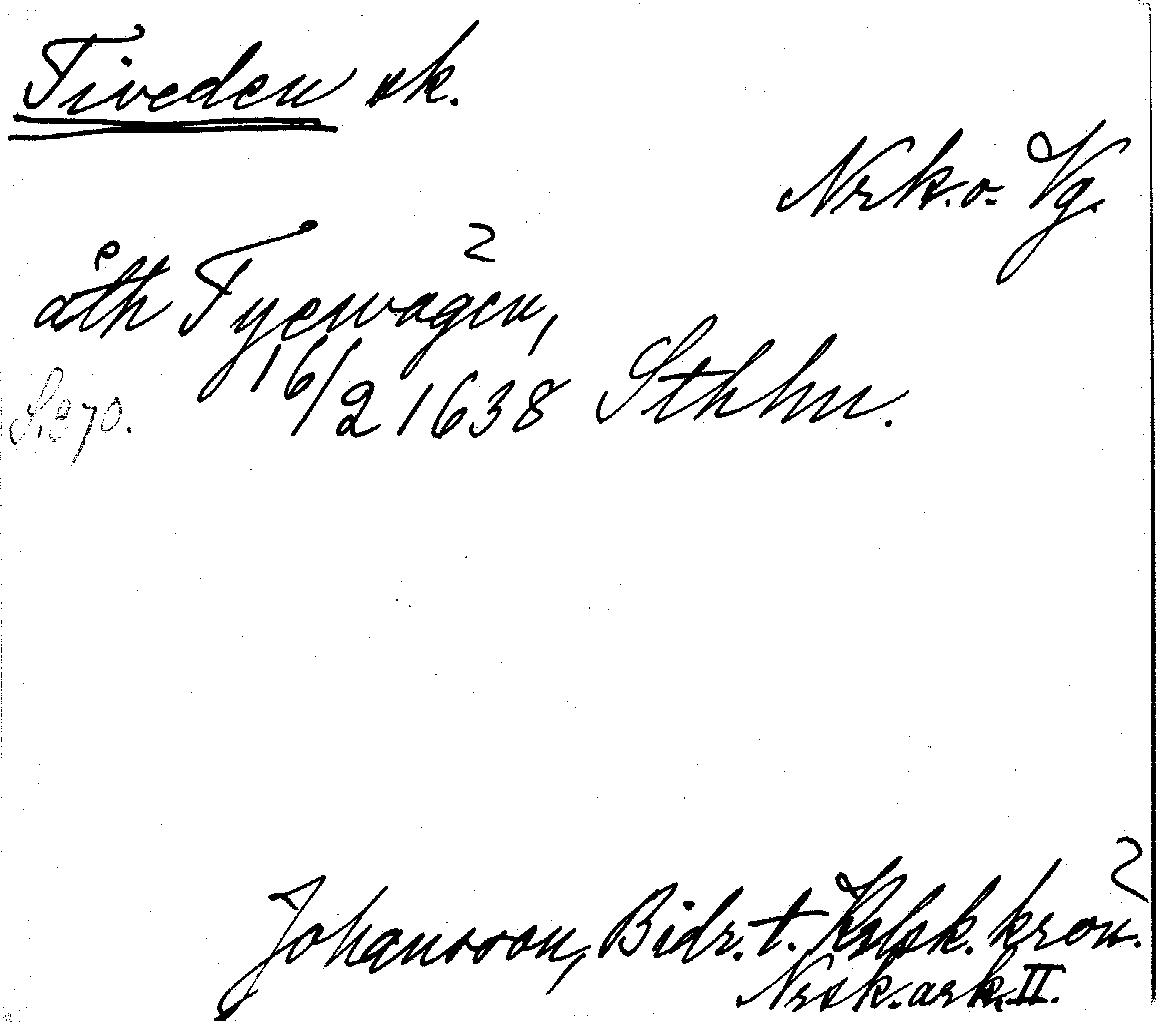 Tiveden sk.
Nrk. o. Vg.
åth Tyewägen,
16/2 1638 Sthlm.
S. 370.
Johansson, Bidr. t. Kpsk. krön.
Nrsk. ark. II.